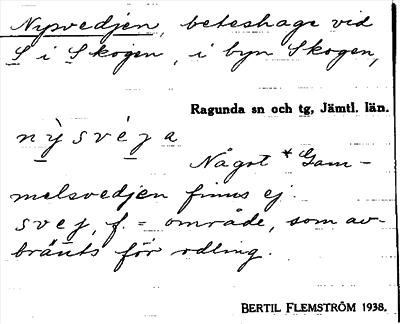 Nysvedjen, beteshage vid
S i Skogen, i byn Skogen,
Ragunda sn och tg, Jämtl. län.
nỳsvèja
Något *Gam-
melsvedjen finns ej.
svej, f. = område, som av-
bränts för odling.
BERTIL FLEMSTRÖM 1938.